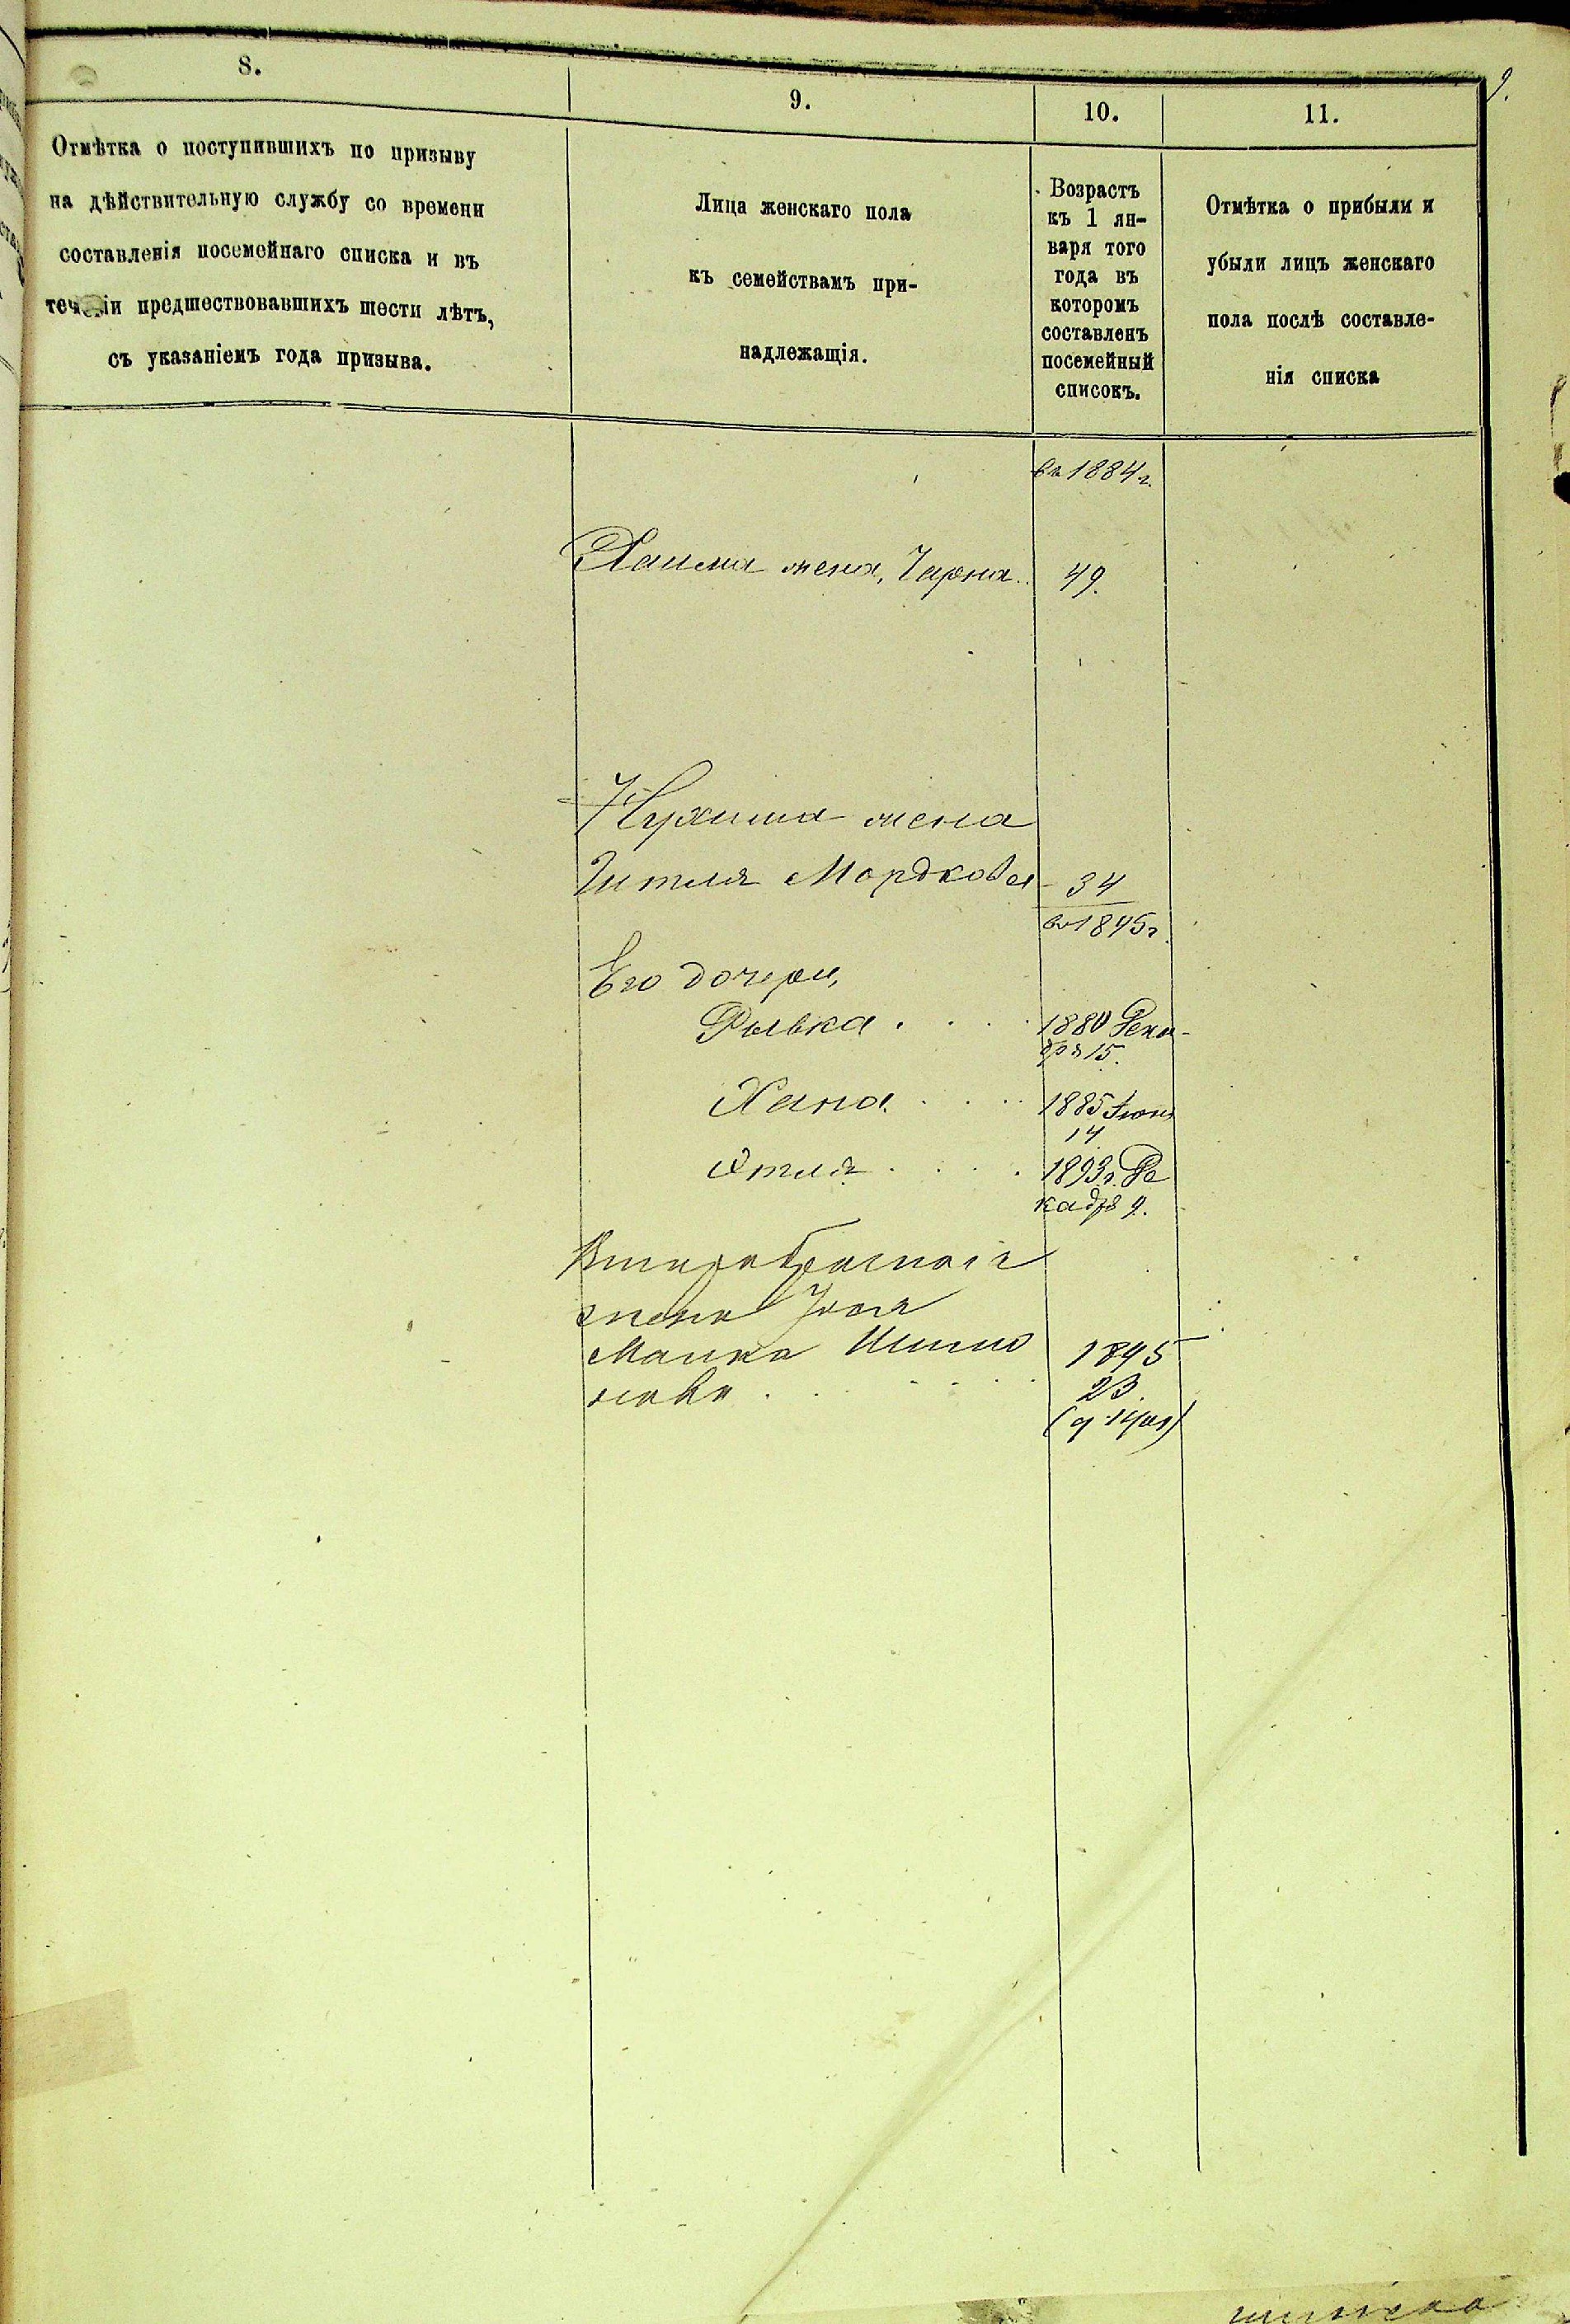 9.
8.
9.
10.
11.
Отмѣтка о поступившихъ по призыву
на дѣйствительную службу со времени
составленія посемейнаго списка и въ
теченіи предшествовавшихъ шести лѣтъ,
съ указаніемъ года призыва.
Лица женскаго пола
къ семействамъ при-
надлежащія.
Возрастъ
къ 1 ян-
варя того
года въ
которомъ
составленъ
посемейный
списокъ.
Отмѣтка о прибыли и
убыли лицъ женскаго
пола послѣ составле-
нія списка
въ 1884 г.
Хаима жена, Чарна 49.
Нухима жена
Гитля Мордкова 34
въ 1895 г.
Его дочери,
Рывка . . . . 1880 Дека-
бря 15.
Хана. . . . 1885 Іюня
14
Этля . . . . 1893 г. Де
кабря 9.
Второбрачная
жена
Малка 1895
23.